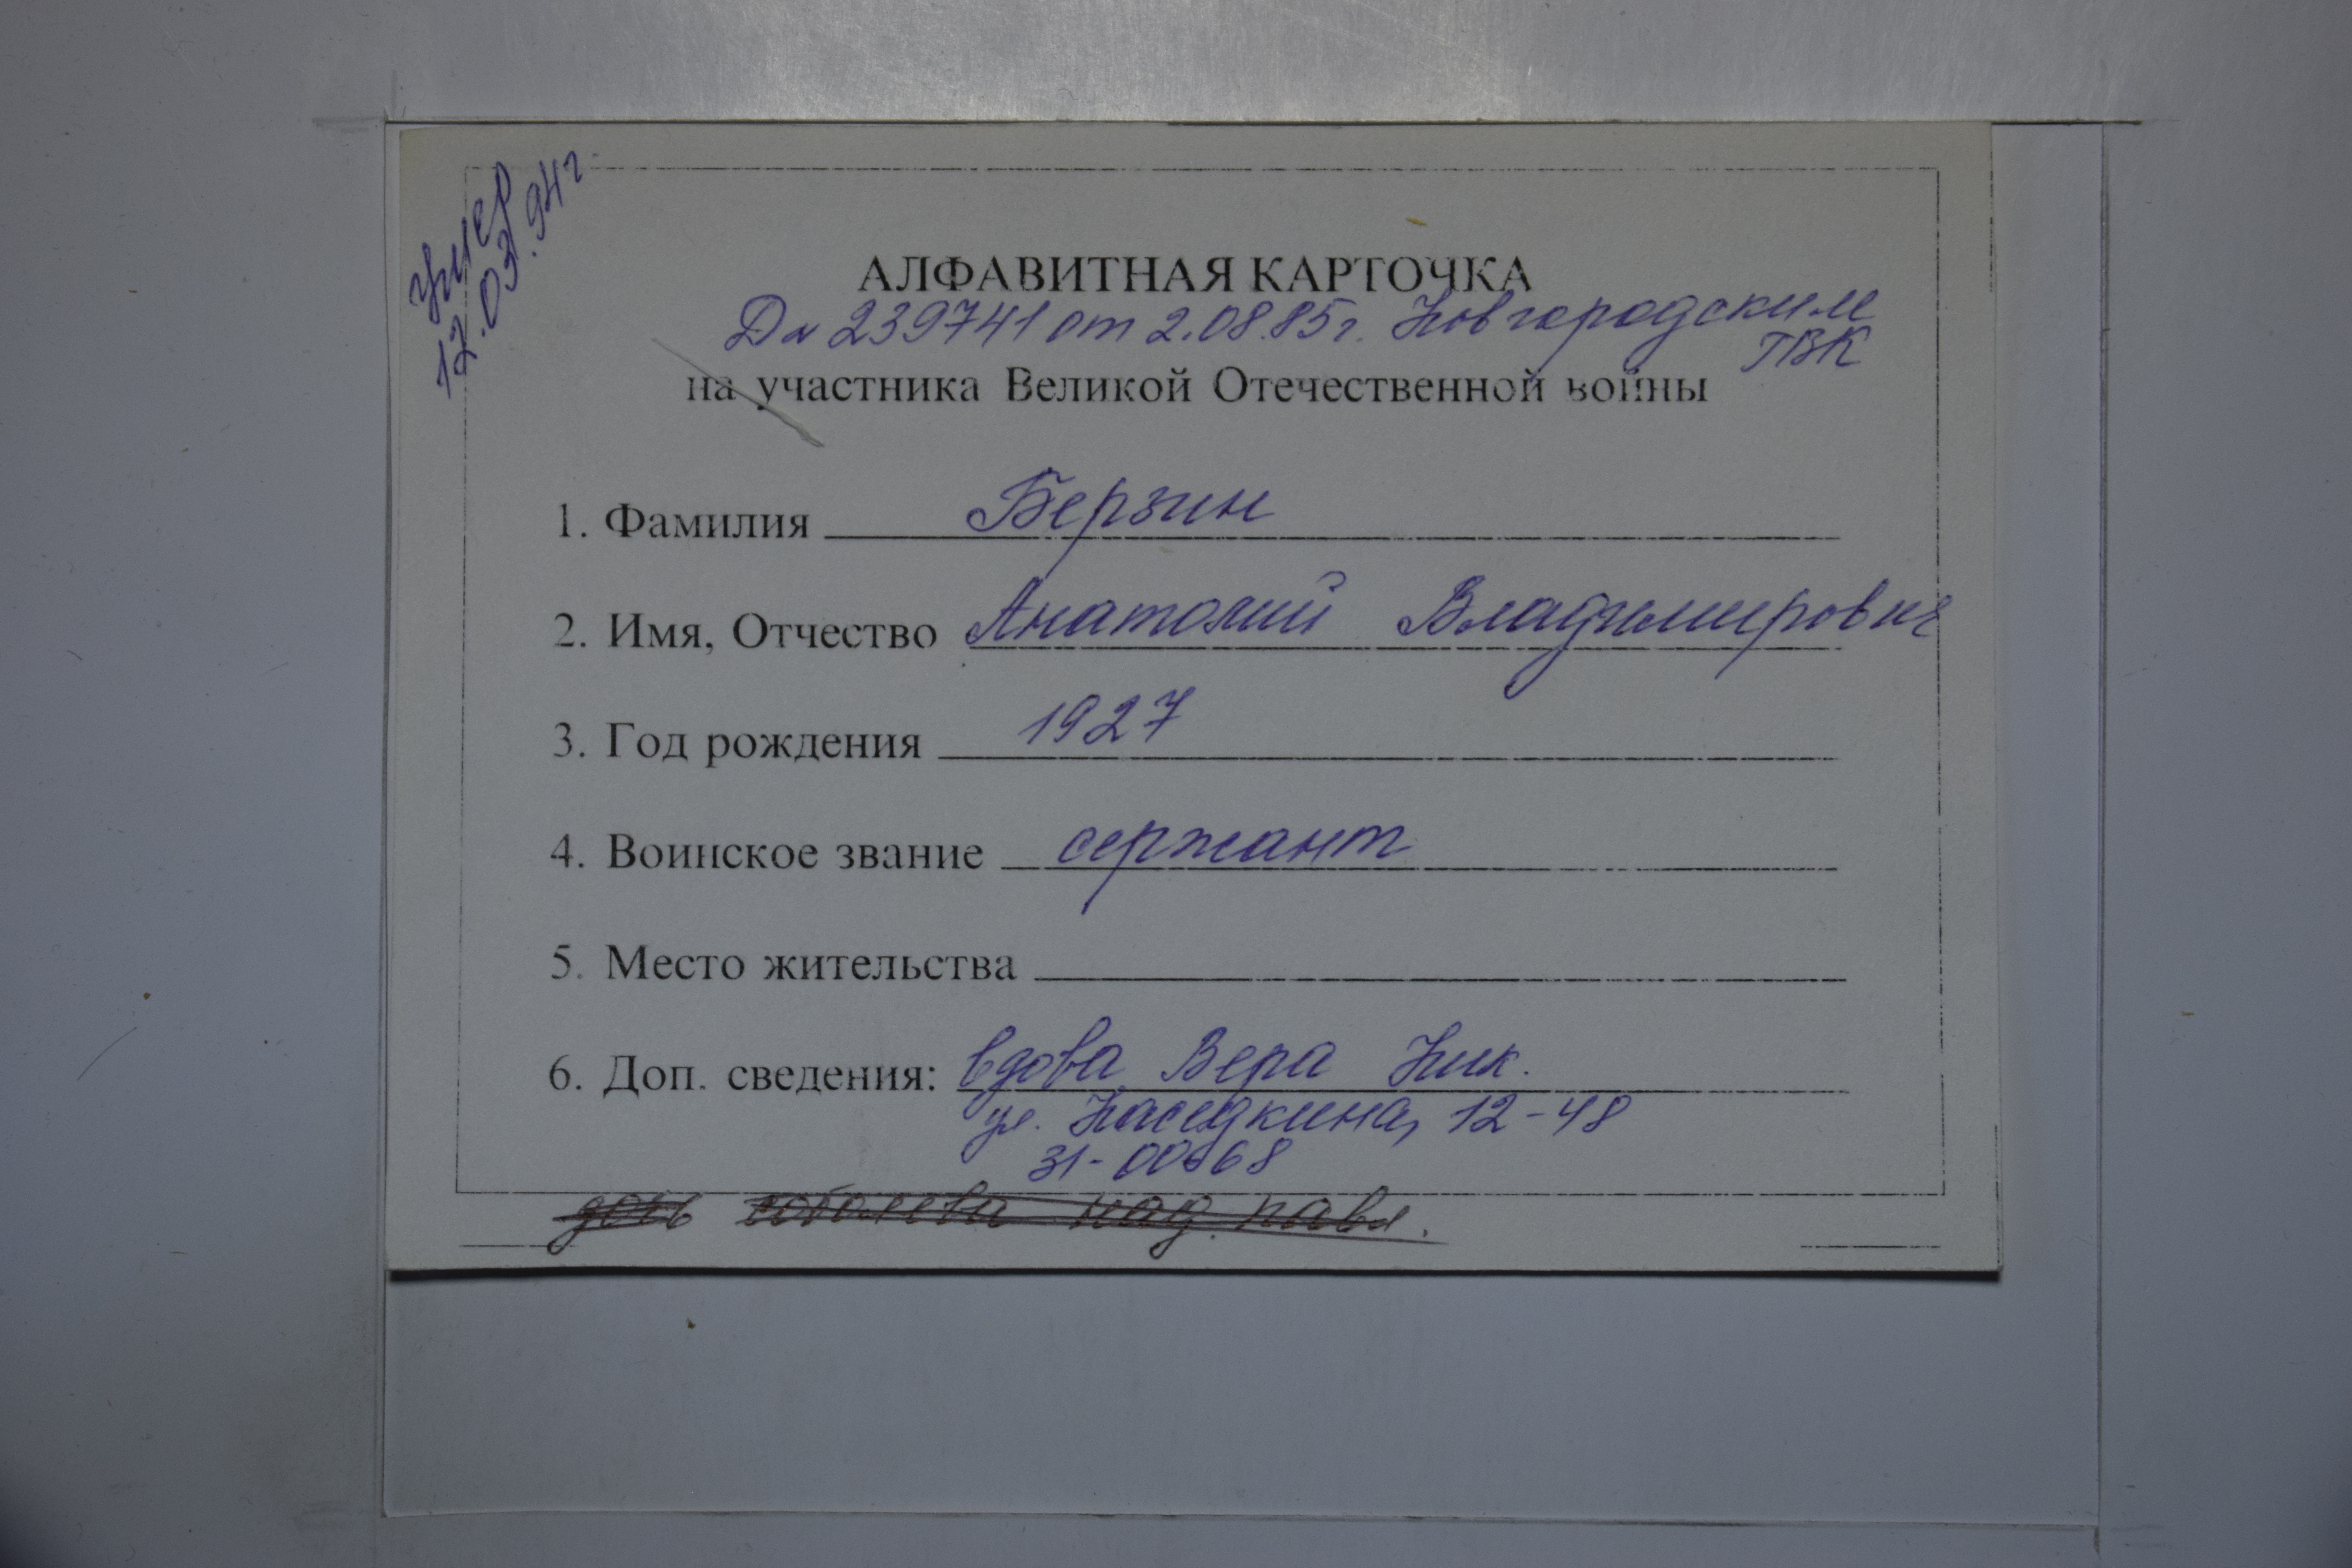 умер
12.03.94г
АЛФАВИТНАЯ КАРТОЧКА
Дл 239741 от 2.08.85г. Новгородским
ГВК
на участника Великой Отечественной войны
1. Фамилия Берзин
2. Имя, Отчество Анатолий Владимирович
3. Год рождения 1927
4. Воинское звание сержант
5. Место жительства
6. Доп. сведения: вдова Вера Ник.
ул. Наседкина, 12-48
31-00668
дочь над. павл.